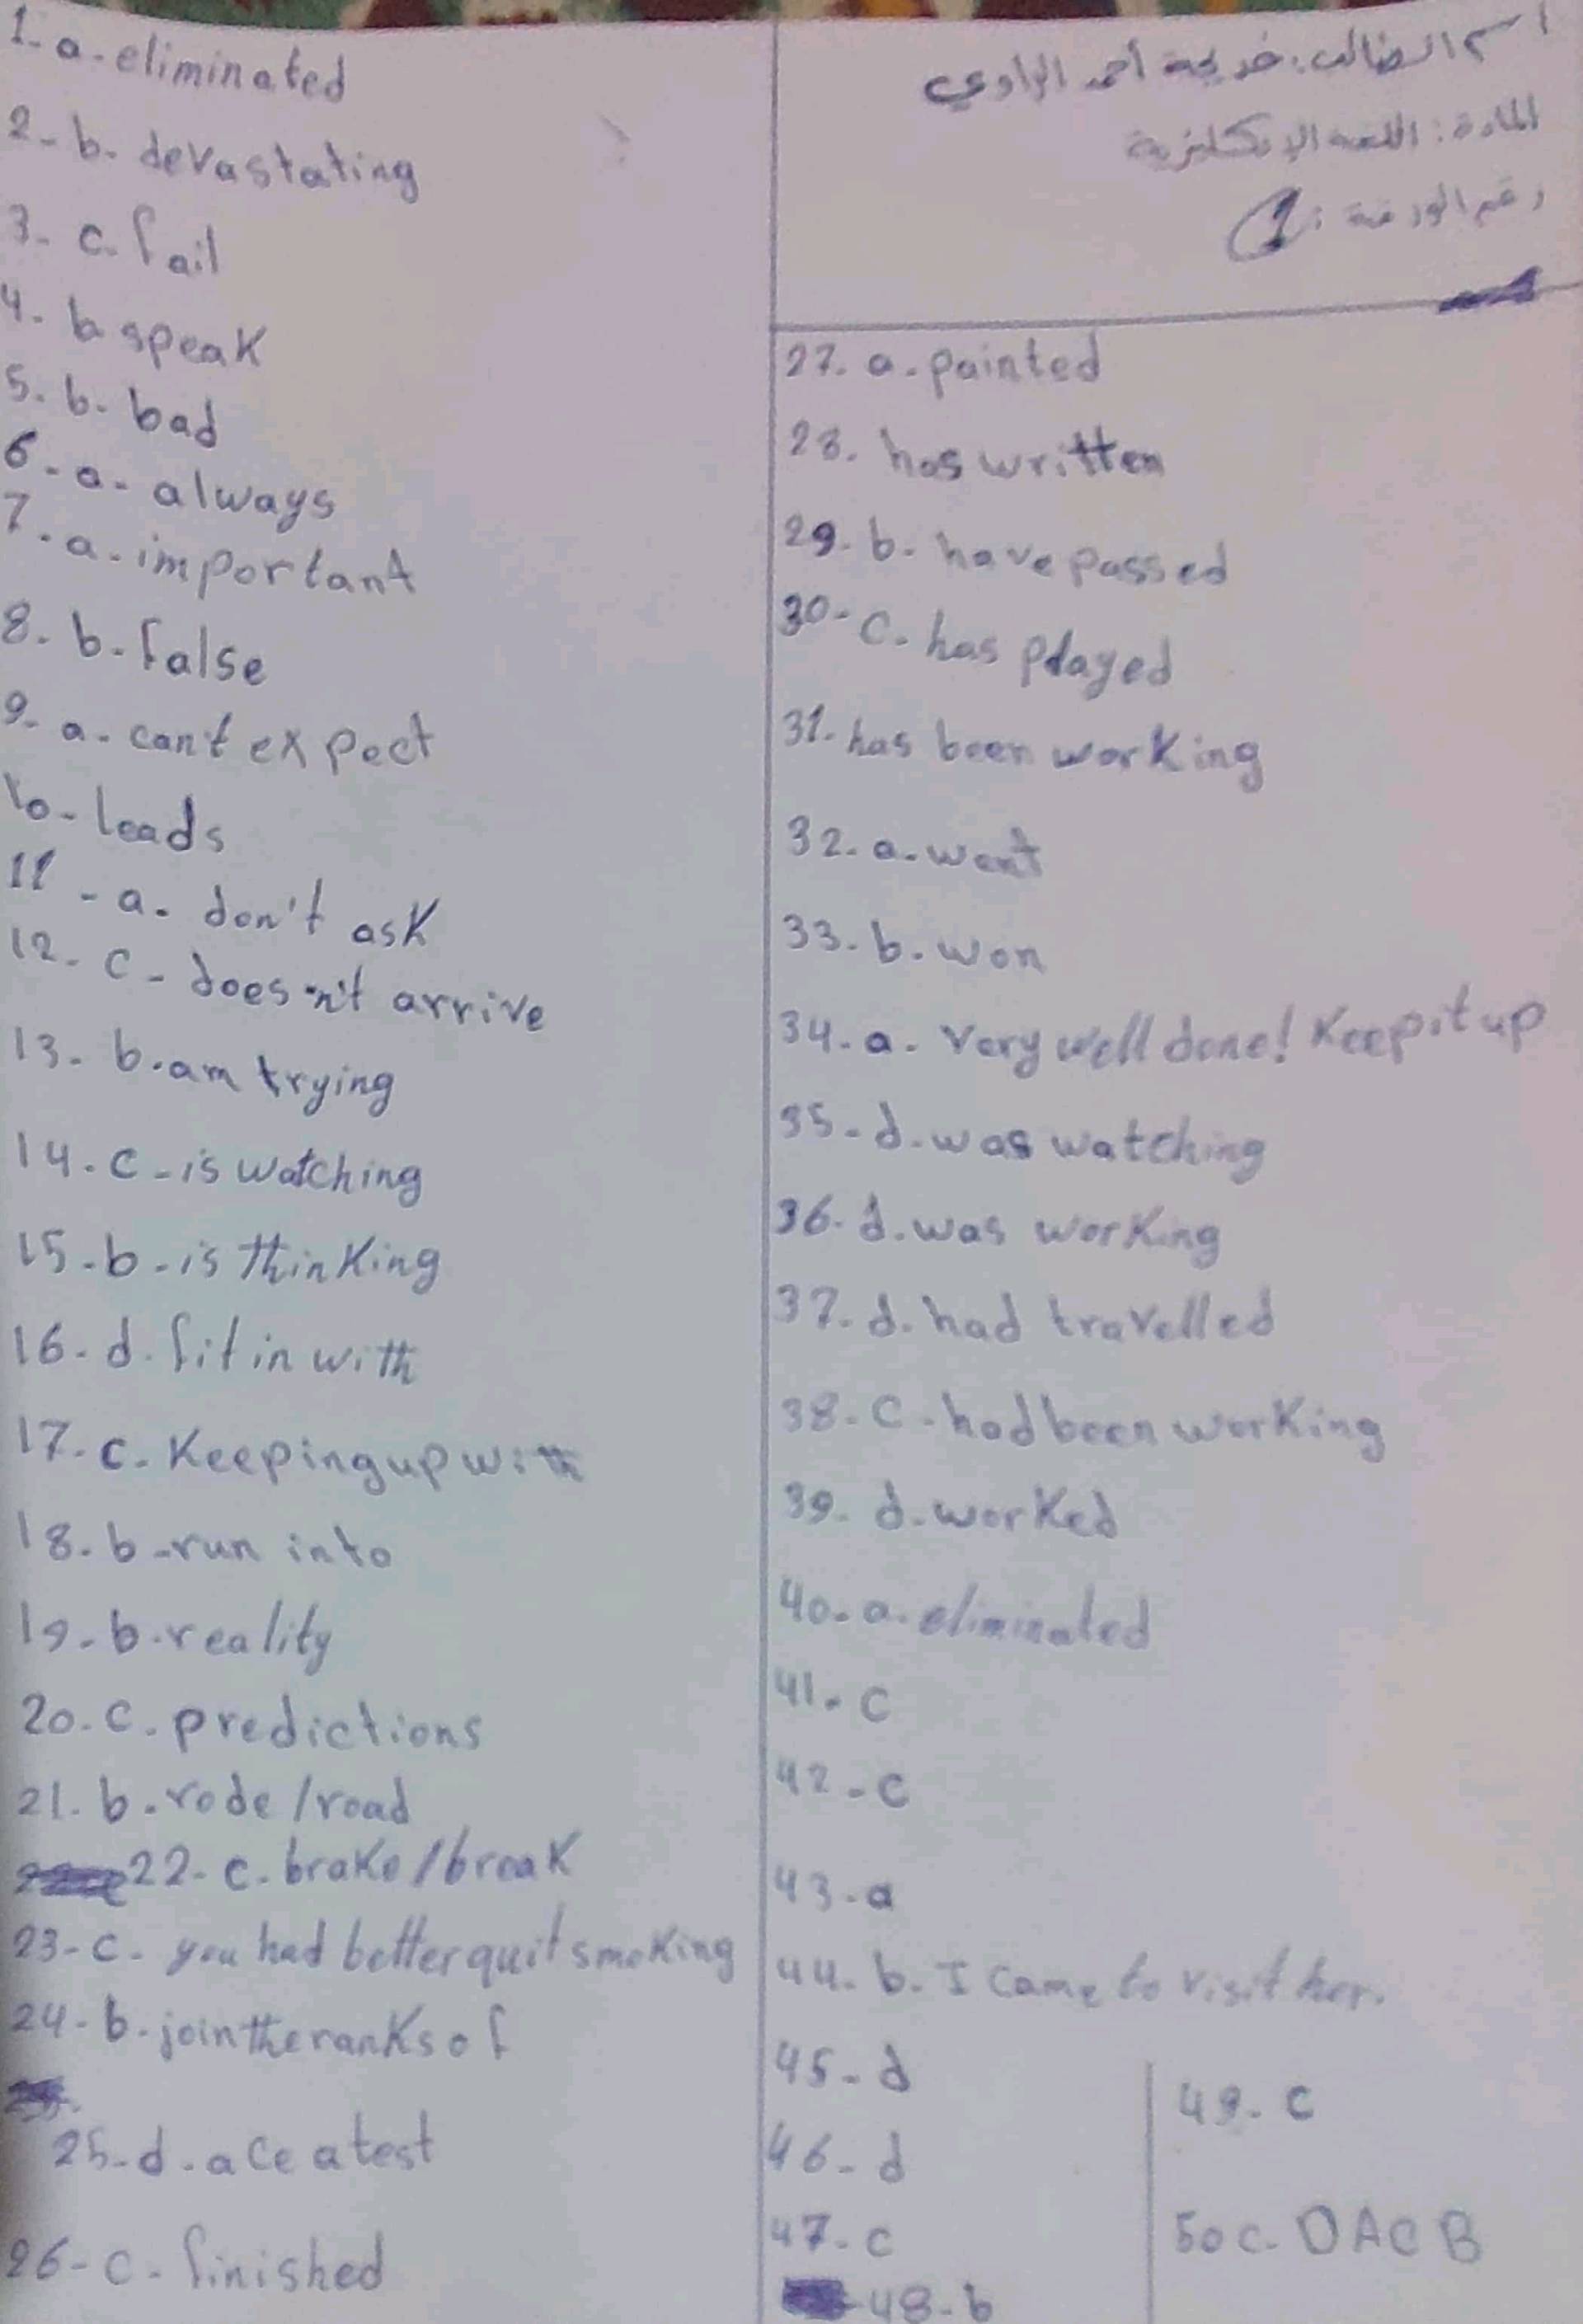 اسم الطالب: خديجة أحمد الراوي
المادة: اللغة الإنكليزية
رقم الورقة: 1
1- a- eliminated
2- b- devastating
3- c- fail
4- b speak
5- b- bad
6- a- always
7- a- important
8- b- false
9- a- can't expect
10- leads
11- a- don't ask
12- c- doesn't arrive
13- b. am trying
14- c- is watching
15- b- is thinking
16- d. fit in with
17- c- Keeping up with
18- b- run into
19- b. reality
20- c. predictions
21. b. rode / road
22- c. brake / break
23- c- you had better quit smoking
24- b- join the ranks of
25- d- ace a test
26- c- finished
27. a. painted
28. has written
29- b- have passed
30- c- has played
31- has been working
32- a- went
33- b. won
34- a- Very well done! Keep it up
35- d. was watching
36- d. was working
37- d. had travelled
38- c- had been working
39- d. worked
40- a- eliminated
41- c
42- c
43- a
44- b. I came to visit her.
45- d
46- d
47- c
48- b
49- c
50 c- DACB